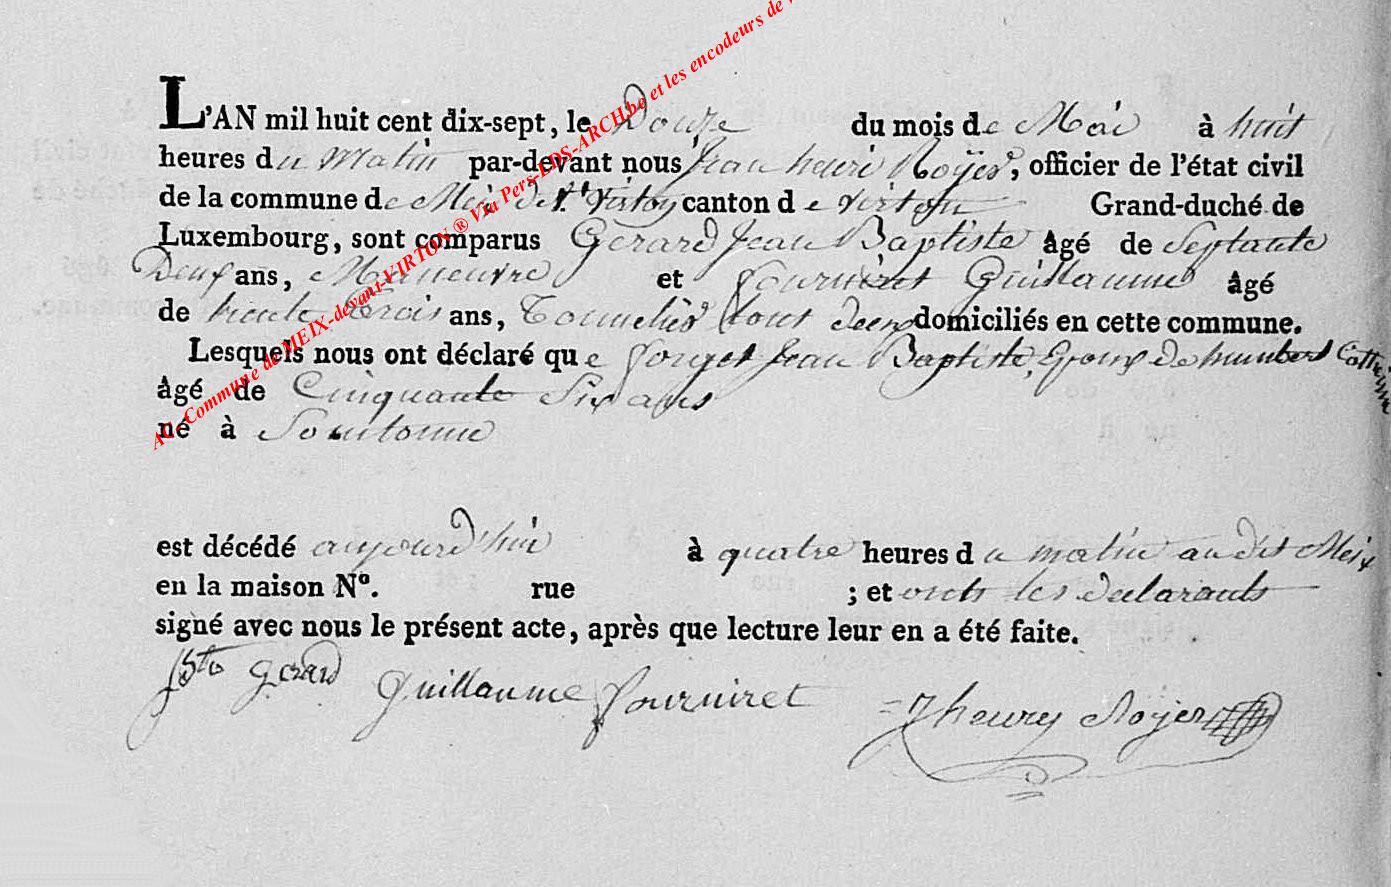 L'AN mil huit cent dix-sept, le Douze du mois de Mai à huit
heures du Matin par-devant nous Jean henri Roÿer, officier de l'état civil
de la commune de Meix devt. Virton canton de virton Grand-duché de
Luxembourg, sont comparus Gerard Jean Baptiste âgé de Septante
Deux ans, Maneuvre et fourniret Guillaume âgé
de trente trois ans, Tonnelier tout deux domiciliés en cette commune.
Lesquels nous ont déclaré que Jean Baptiste, Epoux de humbert Catherine
âgé de Cinquante Six ans
né à
est décédé aujourd'hui à quatre heures du matin au dit Meix
en la maison N°. rue ; et onts les declarants
signé avec nous le présent acte, après que lecture leur en a été faite.
Gerard Guillaume fourniret Jhenry Roÿer
AC. Commune de MEIX-devant-VIRTON ® Via Pers-EDS-ARCH.be et les encodeurs de